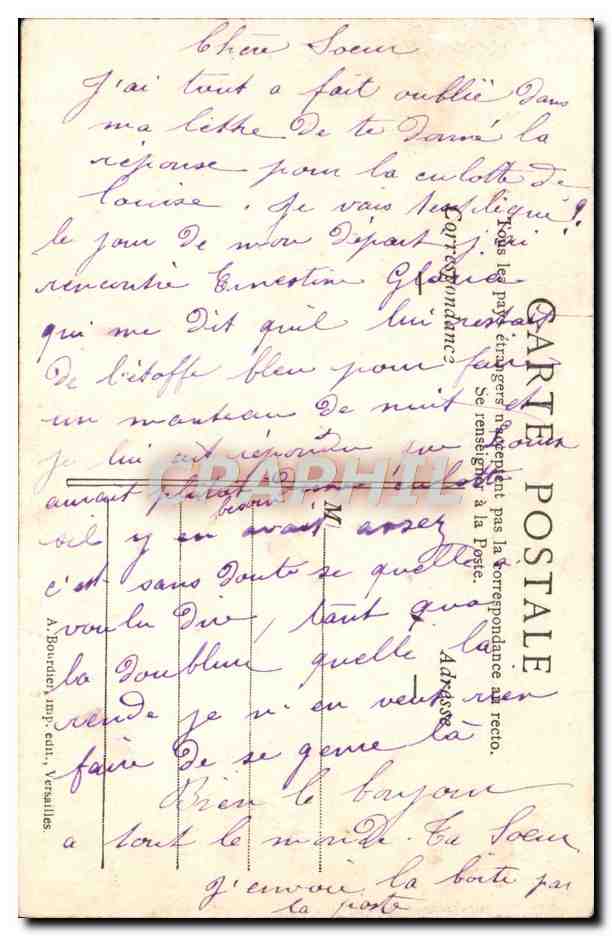 Chère Soeur
J'ai tout a fait oublié dans
ma lettre de te donné la
réponse pour la culotte de
Louise. Je vais t'expliqué
le jour de mon départ j'ai
rencontré Ernestine
qui me dit qu'il lui restait
de l'étoffe bleu pour faire
un manteau de nuit et
je lui ait répondu que Louise
aurait plutot besoin d'une culotte
s'il y en avait assez
c'est sans doute se quelle a
voulu dire, tant qua
la doublure quelle la
rende je n'en veut rien
faire de se genre là
Bien le bonjour
a tout le monde. Ta Soeur
J'envoie la boîte par
la poste
CARTE POSTALE
Tous les pays étrangers n'acceptent pas la correspondance au recto.
Se renseigner à la Poste.
Correspondance
Adresse
M
A. Bourdier, imp. édit., Versailles.
CRAPHIL